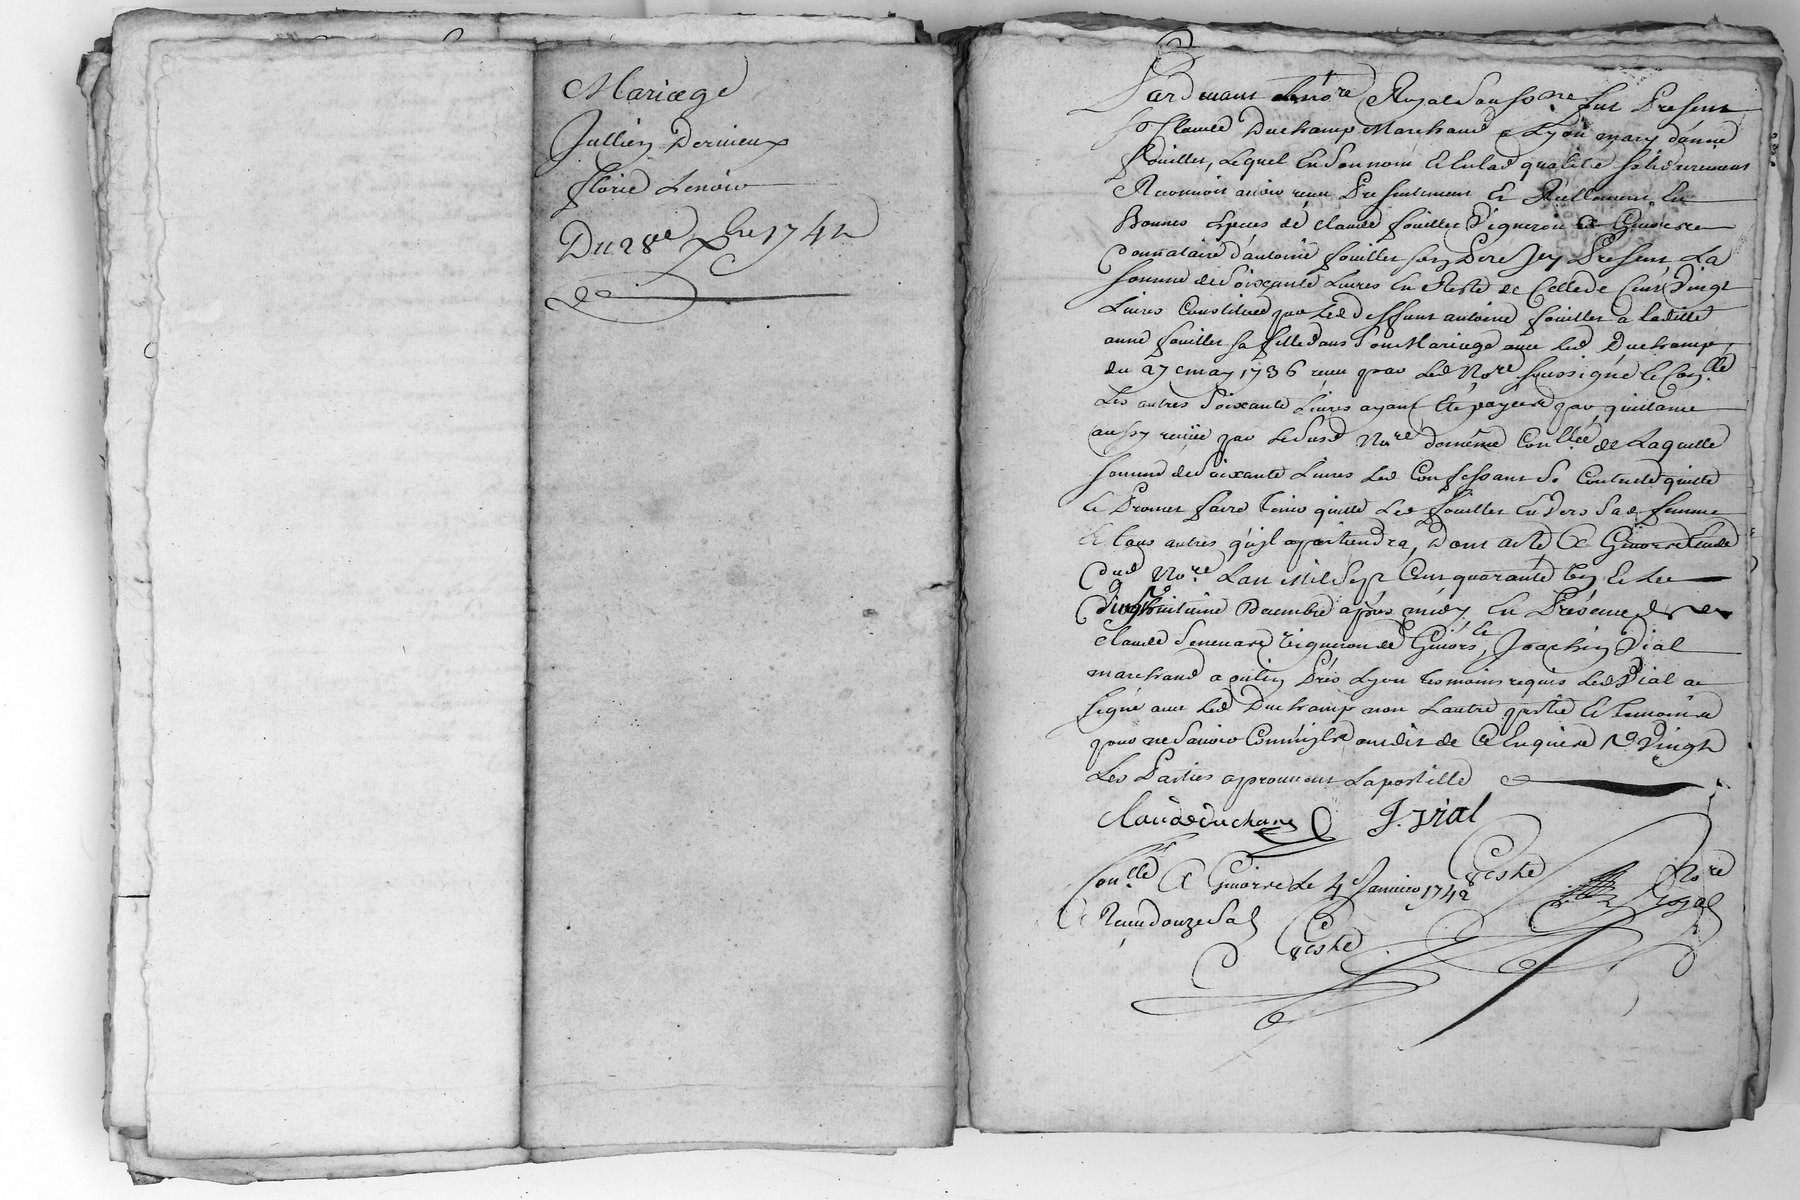 Mariage
Jullien Derieux
florie Lenoir
Du 28e xbre 1741
Pardevant le nore Royal soussne fut Present
sr Claude Duchamp Marchand a Lyon mary danne
fouiller, lequel en son nom et en lad qualité solidairement
Reconnoit avoir receu Presentement et Reellement en
Bonnes especes de claude fouiller Vigneron de Givors
donnataire d'antoine fouiller son Pere Jcy Present La
somme de soixante Livres en Reste de Celle de Cent Vingt
Livres Constituée par led deffunt antoine fouiller a laditte
anne fouiller sa fille dans son Mariage avec led Duchamp
du 27e may 1736 receu par led Nore soussigné et Conllé
Les autres soixante Livres ayant été payées par quittance
aussy receüe par le susd Nore Conllée de Laquelle
somme de soixante Livres led Confessant se Contente quitte
et Promet faire tenir quitte led fouiller envers sad femme
et tous autres qu'jl apartiendra, dont acte a Givors Etude
dud Nore Lan Mil Sept Cent quarante un et le
Vingthuitieme Decembre après midy en Présence de
claude vigneron de Givors, et Joachin Vial
marchand a oulin Près Lyon temoins requis led Vial a
signé avec led Duchamp non Lautre partie et temoin
pour ne savoir Comm'jls ont dit de ce Enquis Vingt
Les Parties aprouvent Lapostille
claude duchamp J. Vial
Conllé a Givors le 4 Janvier 1742
Receu douze sols
Nore
Royal